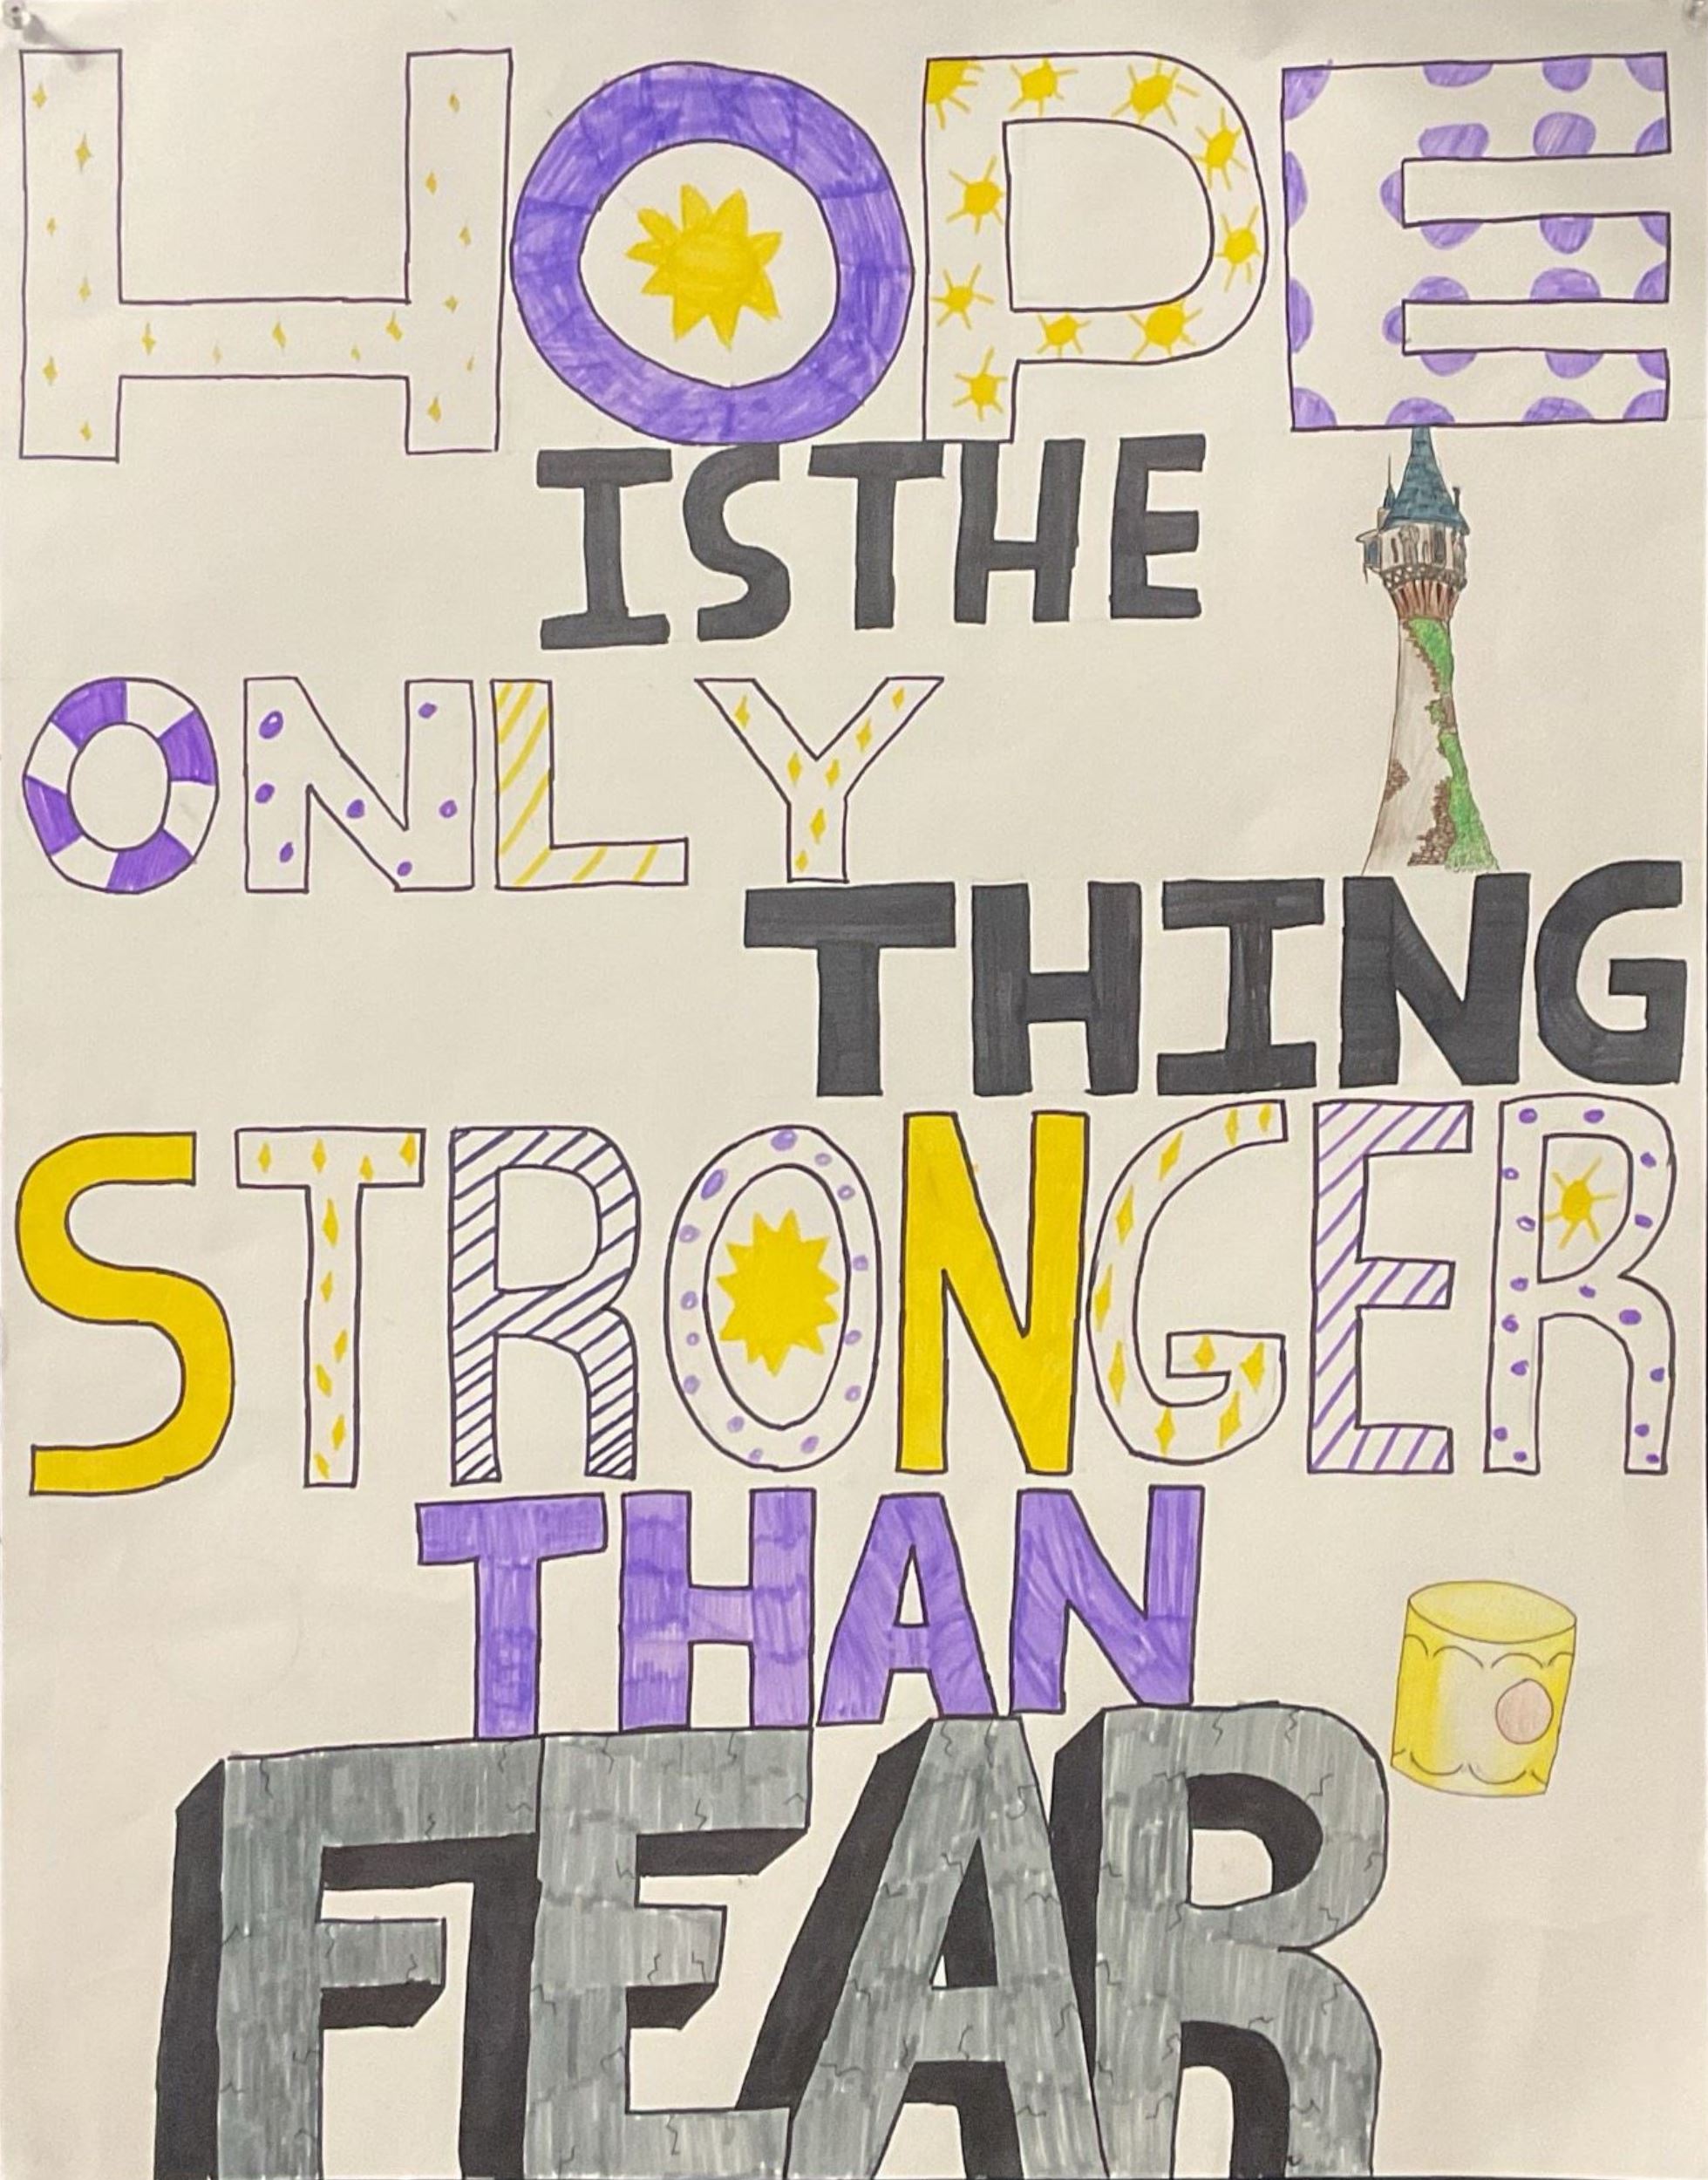 HOPE
IS THE
ONLY
THING
STRONGER
THAN
FEAR